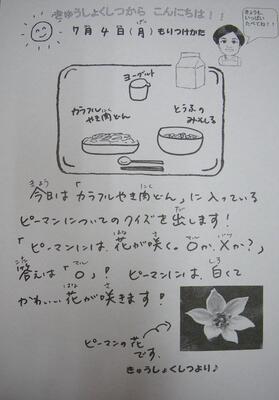 きゅうしょくしつから こんにちは!!
きょうも、
いっぱい
たべてね!!
7月4日(月)もりつけかた
ヨーグルト
カラフル
やき肉どん
とうふの
みそしる
今日は「カラフルやき肉どん」に入っている
ピーマンについてのクイズを出します!
「ピーマンには、花が咲く。○か、×か?」
答えは「○」! ピーマンには、白くて
かわいい花が咲きます!
ピーマンの花
です。
きゅうしょくしつより♪